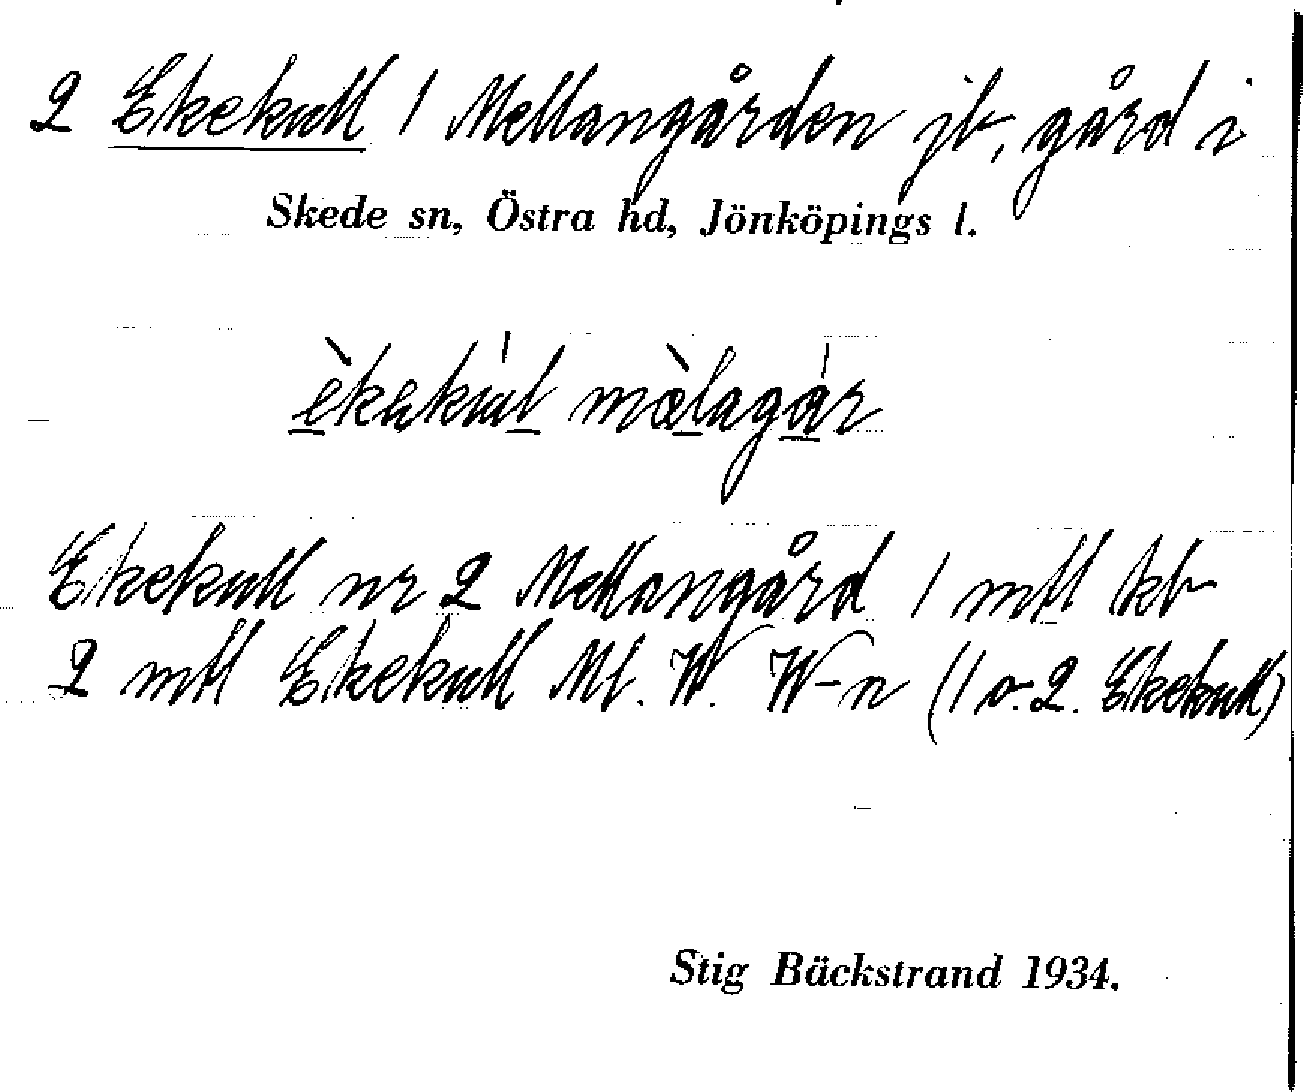 2 Ekekull / Mellangården jb, gård i
Skede sn, Östra hd, Jönköpings l.
Ekekull nr 2 Mellangård 1 mtl kb
2 mtl Ekekull Ml. W. W-n (1 o. 2. Ekekull)
Stig Bäckstrand 1934.